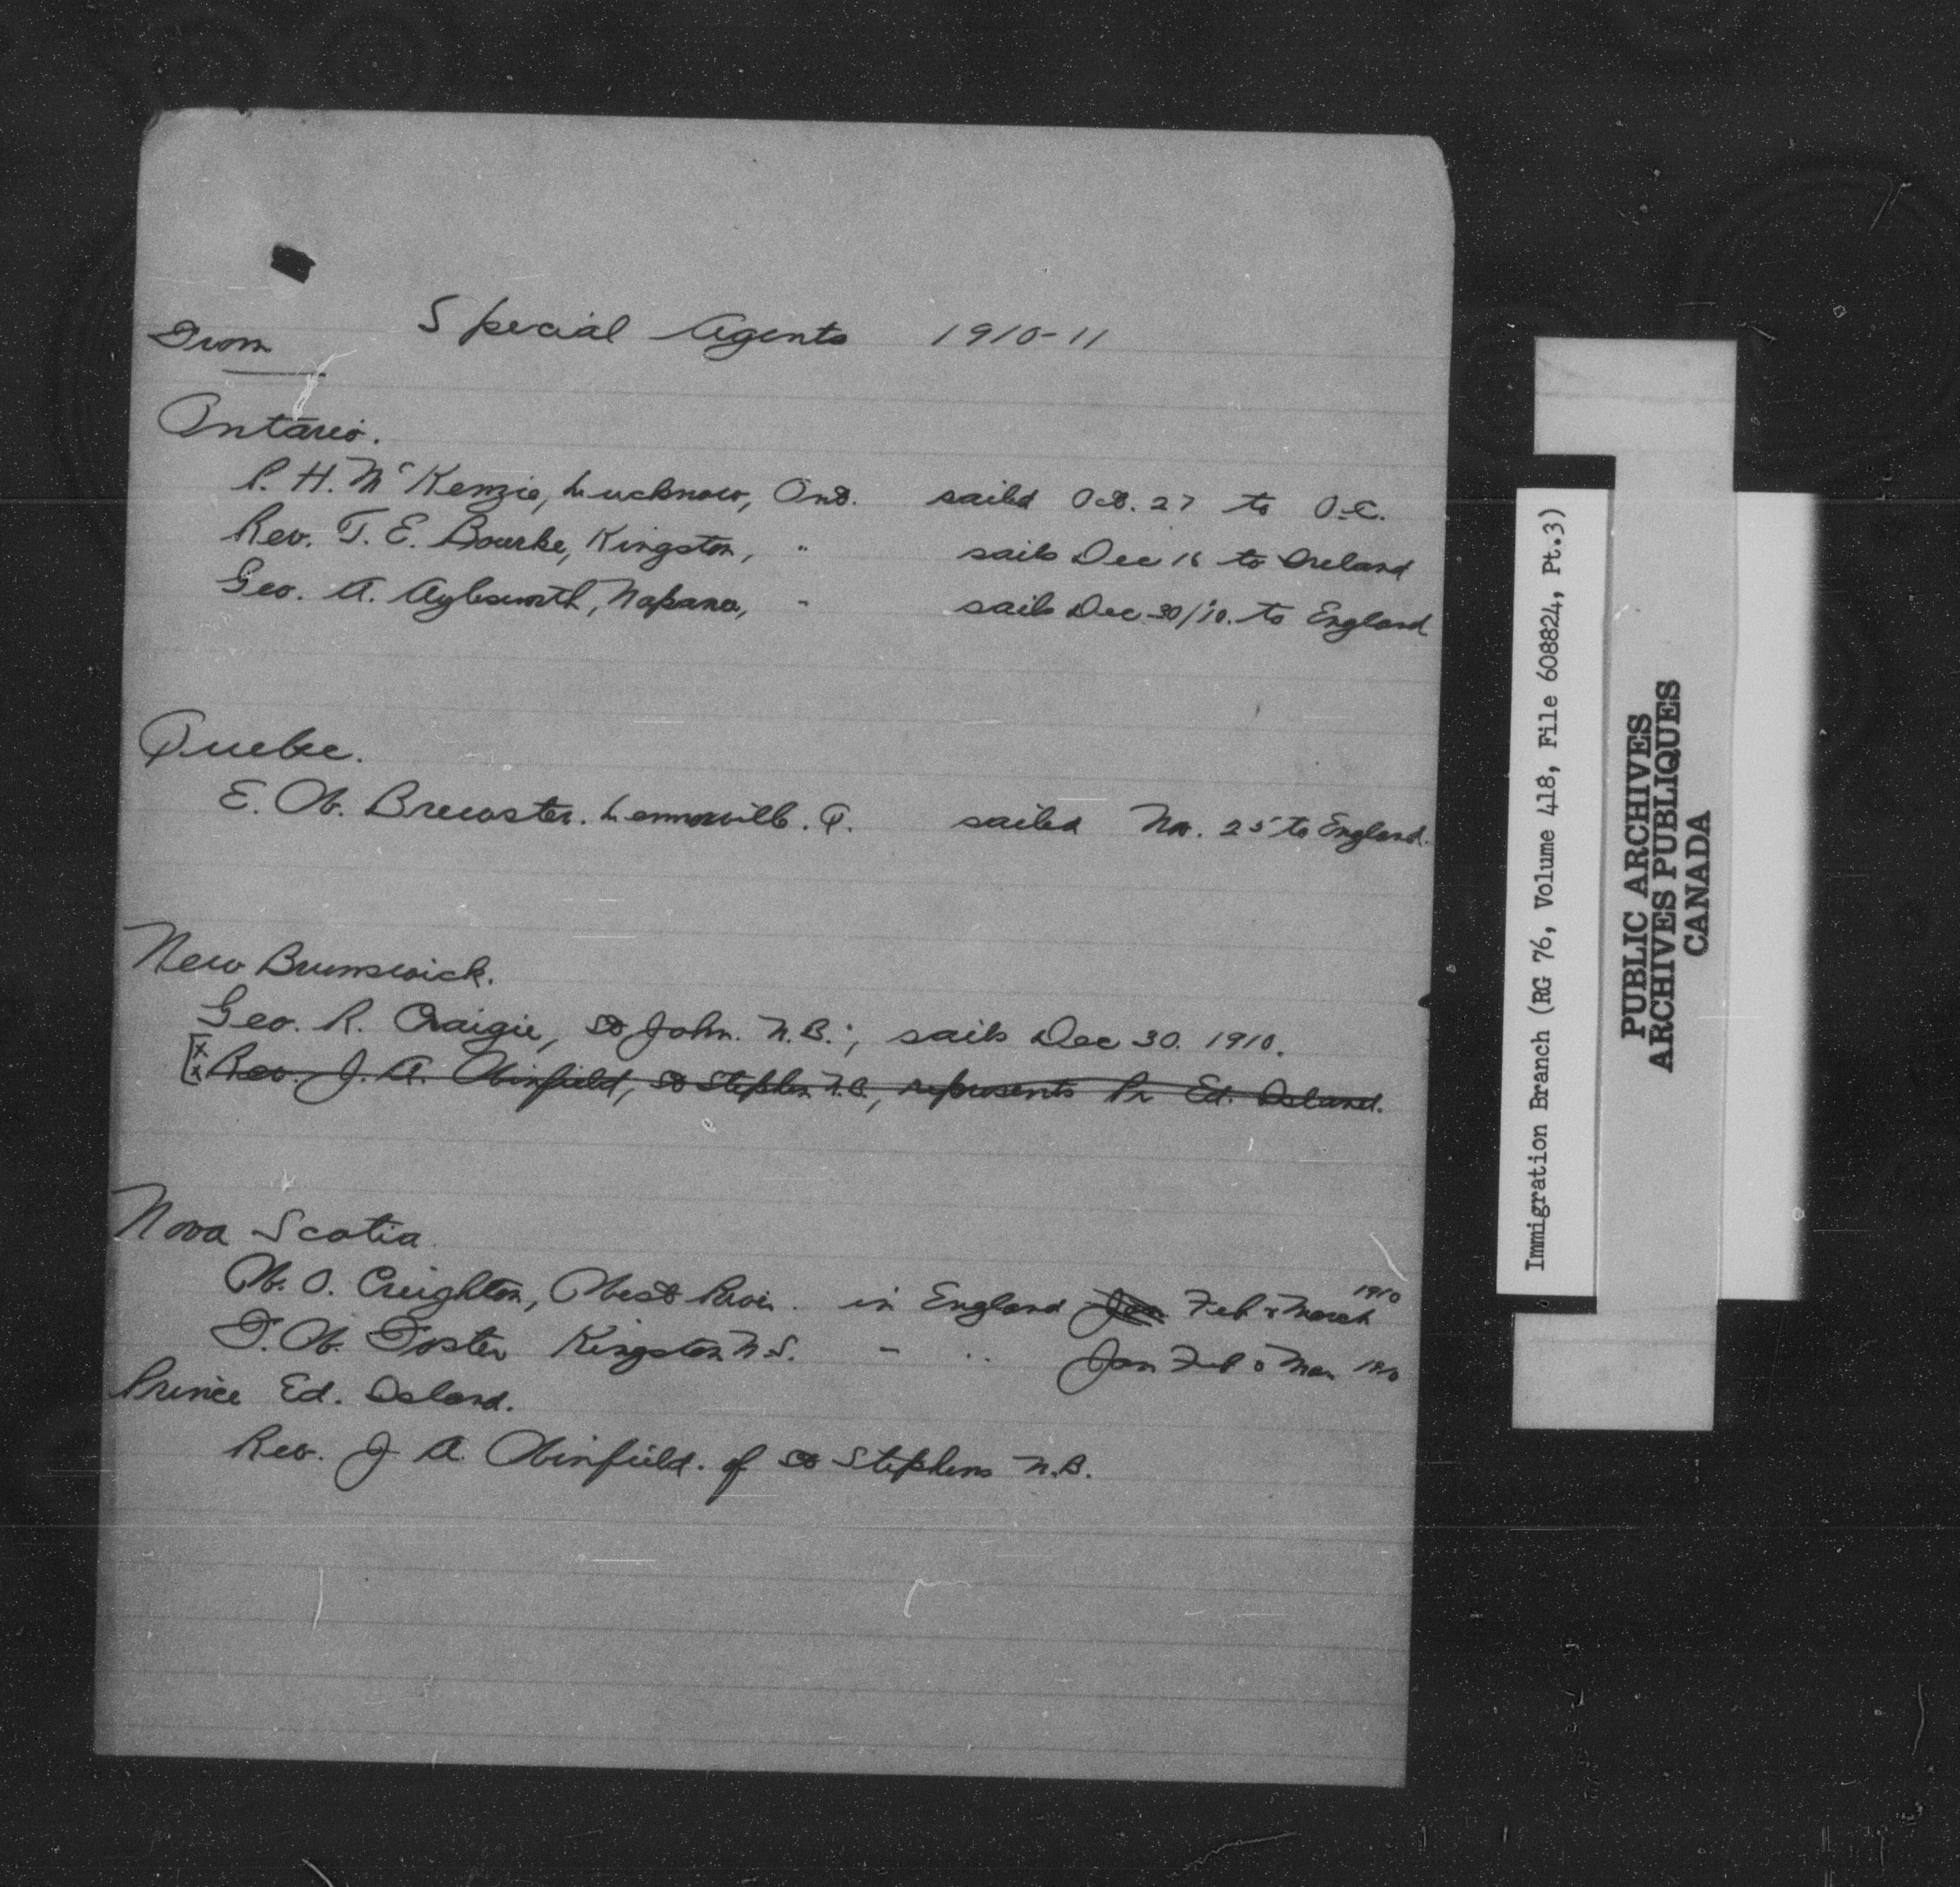 Special Agents 1910-11
From
Ontario.
P. H. McKenzie, Lucknow, Ont. sailed Oct. 27 to O.C.
Rev. T. E. Bourke, Kingston, " sails Dec 16 to Ireland
Geo. A. Aylesworth, Napanee, " sails Dec 30/10. to England
Quebec.
E. W. Brewster. Lennoxville. Q. sailed Nov. 25 to England.
New Brunswick.
Geo. R. Craigie, St John. N.B.; sails Dec 30. 1910.
Rev. J. A. Winfield, St Stephen N.B., represents Pr Ed. Island.
Nova Scotia
W. O. Creighton, West River. in England Jan Feb & March 1910
F. W. Foster Kingston N.S. " " Jan Feb & Mar 1910
Prince Ed. Island.
Rev. J A. Winfield. of St Stephens N.B.
Immigration Branch (RG 76, Volume 418, File 608824, Pt.3)
PUBLIC ARCHIVES
ARCHIVES PUBLIQUES
CANADA